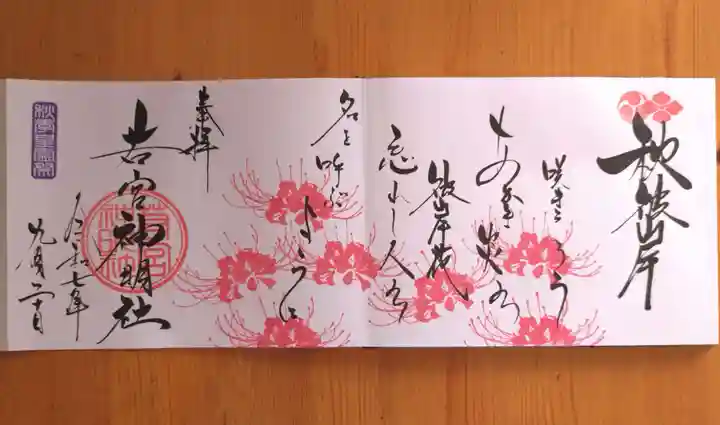 秋彼岸
咲きそろう
炎の
彼岸花
忘れし人の
名を呼ぶ
ように
奉拝
若宮神明社
令和七年
九月二十日
秋季皇霊祭